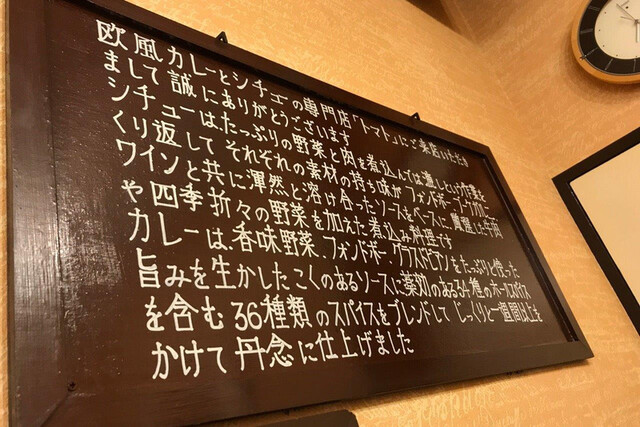 欧風カレーとシチューの専門店「トマト」にご来店いただき
まして誠にありがとうございます
シチューは、たっぷりの野菜と肉を煮込んでは漉しという作業を
くり返して それぞれの素材の持ち味が フォンドボー、ブラウンルー、
ワインと共に渾然と溶け合ったソースをベースに、 牛肉
や四季折々の野菜を加えた煮込み料理です
カレーは、香味野菜、フォンドボー、グラスドビアンをたっぷり使った
旨みを生かしたこくのあるソースに薬効のある34種のホールスパイス
を含む36種類のスパイスをブレンドして じっくりと一週間以上を
かけて丹念に仕上げました